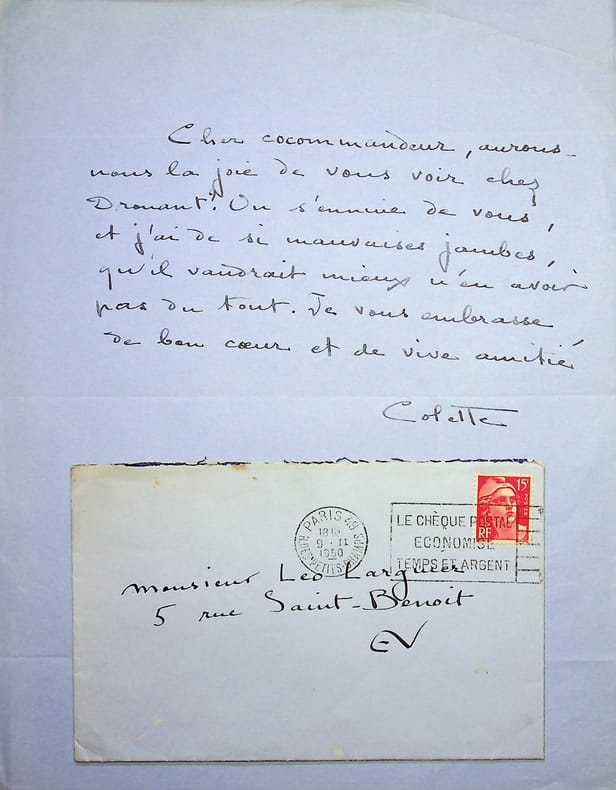 Cher cocommandeur, aurons-
nous la joie de vous voir chez
Drouant? On s'ennuie de vous,
et j'ai de si mauvaises jambes,
qu'il vaudrait mieux n'en avoir
pas du tout. Je vous embrasse
de bon cœur et de vive amitié
Colette
15F
RF
PARIS 49
18H
9-II
1950
R. DES PETITS-CHAMPS
LE CHÈQUE POSTAL
ECONOMISE
TEMPS ET ARGENT
Monsieur Leo Larguier
5 rue Saint-Benoit
EV